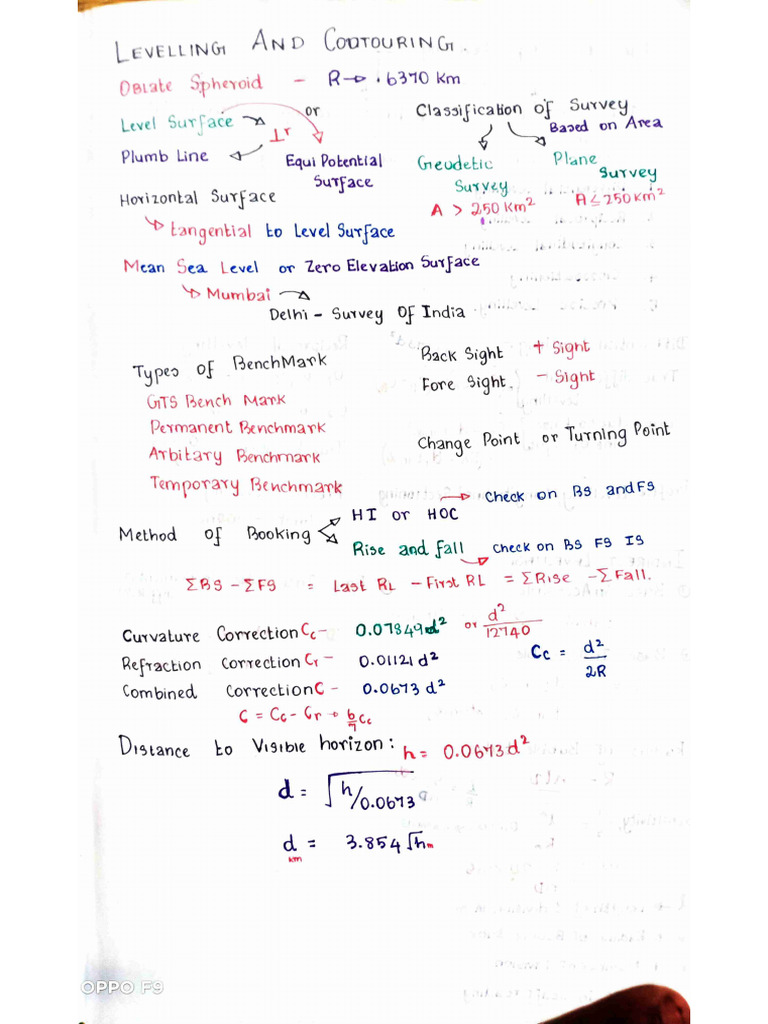 LEVELLING AND COUTOURING.
Oblate Spheroid - R → .6370 Km
Level Surface or
⊥r
Plumb Line Equi Potential Surface
Horizontal Surface
tangential to Level Surface
Classification of Survey
Based on Area
Geodetic Survey
A > 250 Km²
Plane Survey
A ≤ 250 Km²
Mean Sea Level or Zero Elevation Surface
Mumbai
Delhi - Survey Of India
Types of BenchMark
GTS Bench Mark
Permanent Benchmark
Arbitary Benchmark
Temporary Benchmark
Back Sight + Sight
Fore Sight. - Sight
Change Point or Turning Point
Method of Booking
HI or HOC → Check on BS and FS
Rise and fall → Check on BS FS IS
ΣBS - ΣFS = Last RL - First RL = ΣRise - ΣFall.
Curvature Correction Cc - 0.07849d² or d²/12740
Refraction Correction Cr - 0.01121 d²
Cc = d²/2R
Combined Correction C - 0.0673 d²
C = Cc - Cr → 6/7 Cc
Distance to Visible horizon: h = 0.0673d²
d = √h/0.0673
d km = 3.854 √h m
OPPO F9